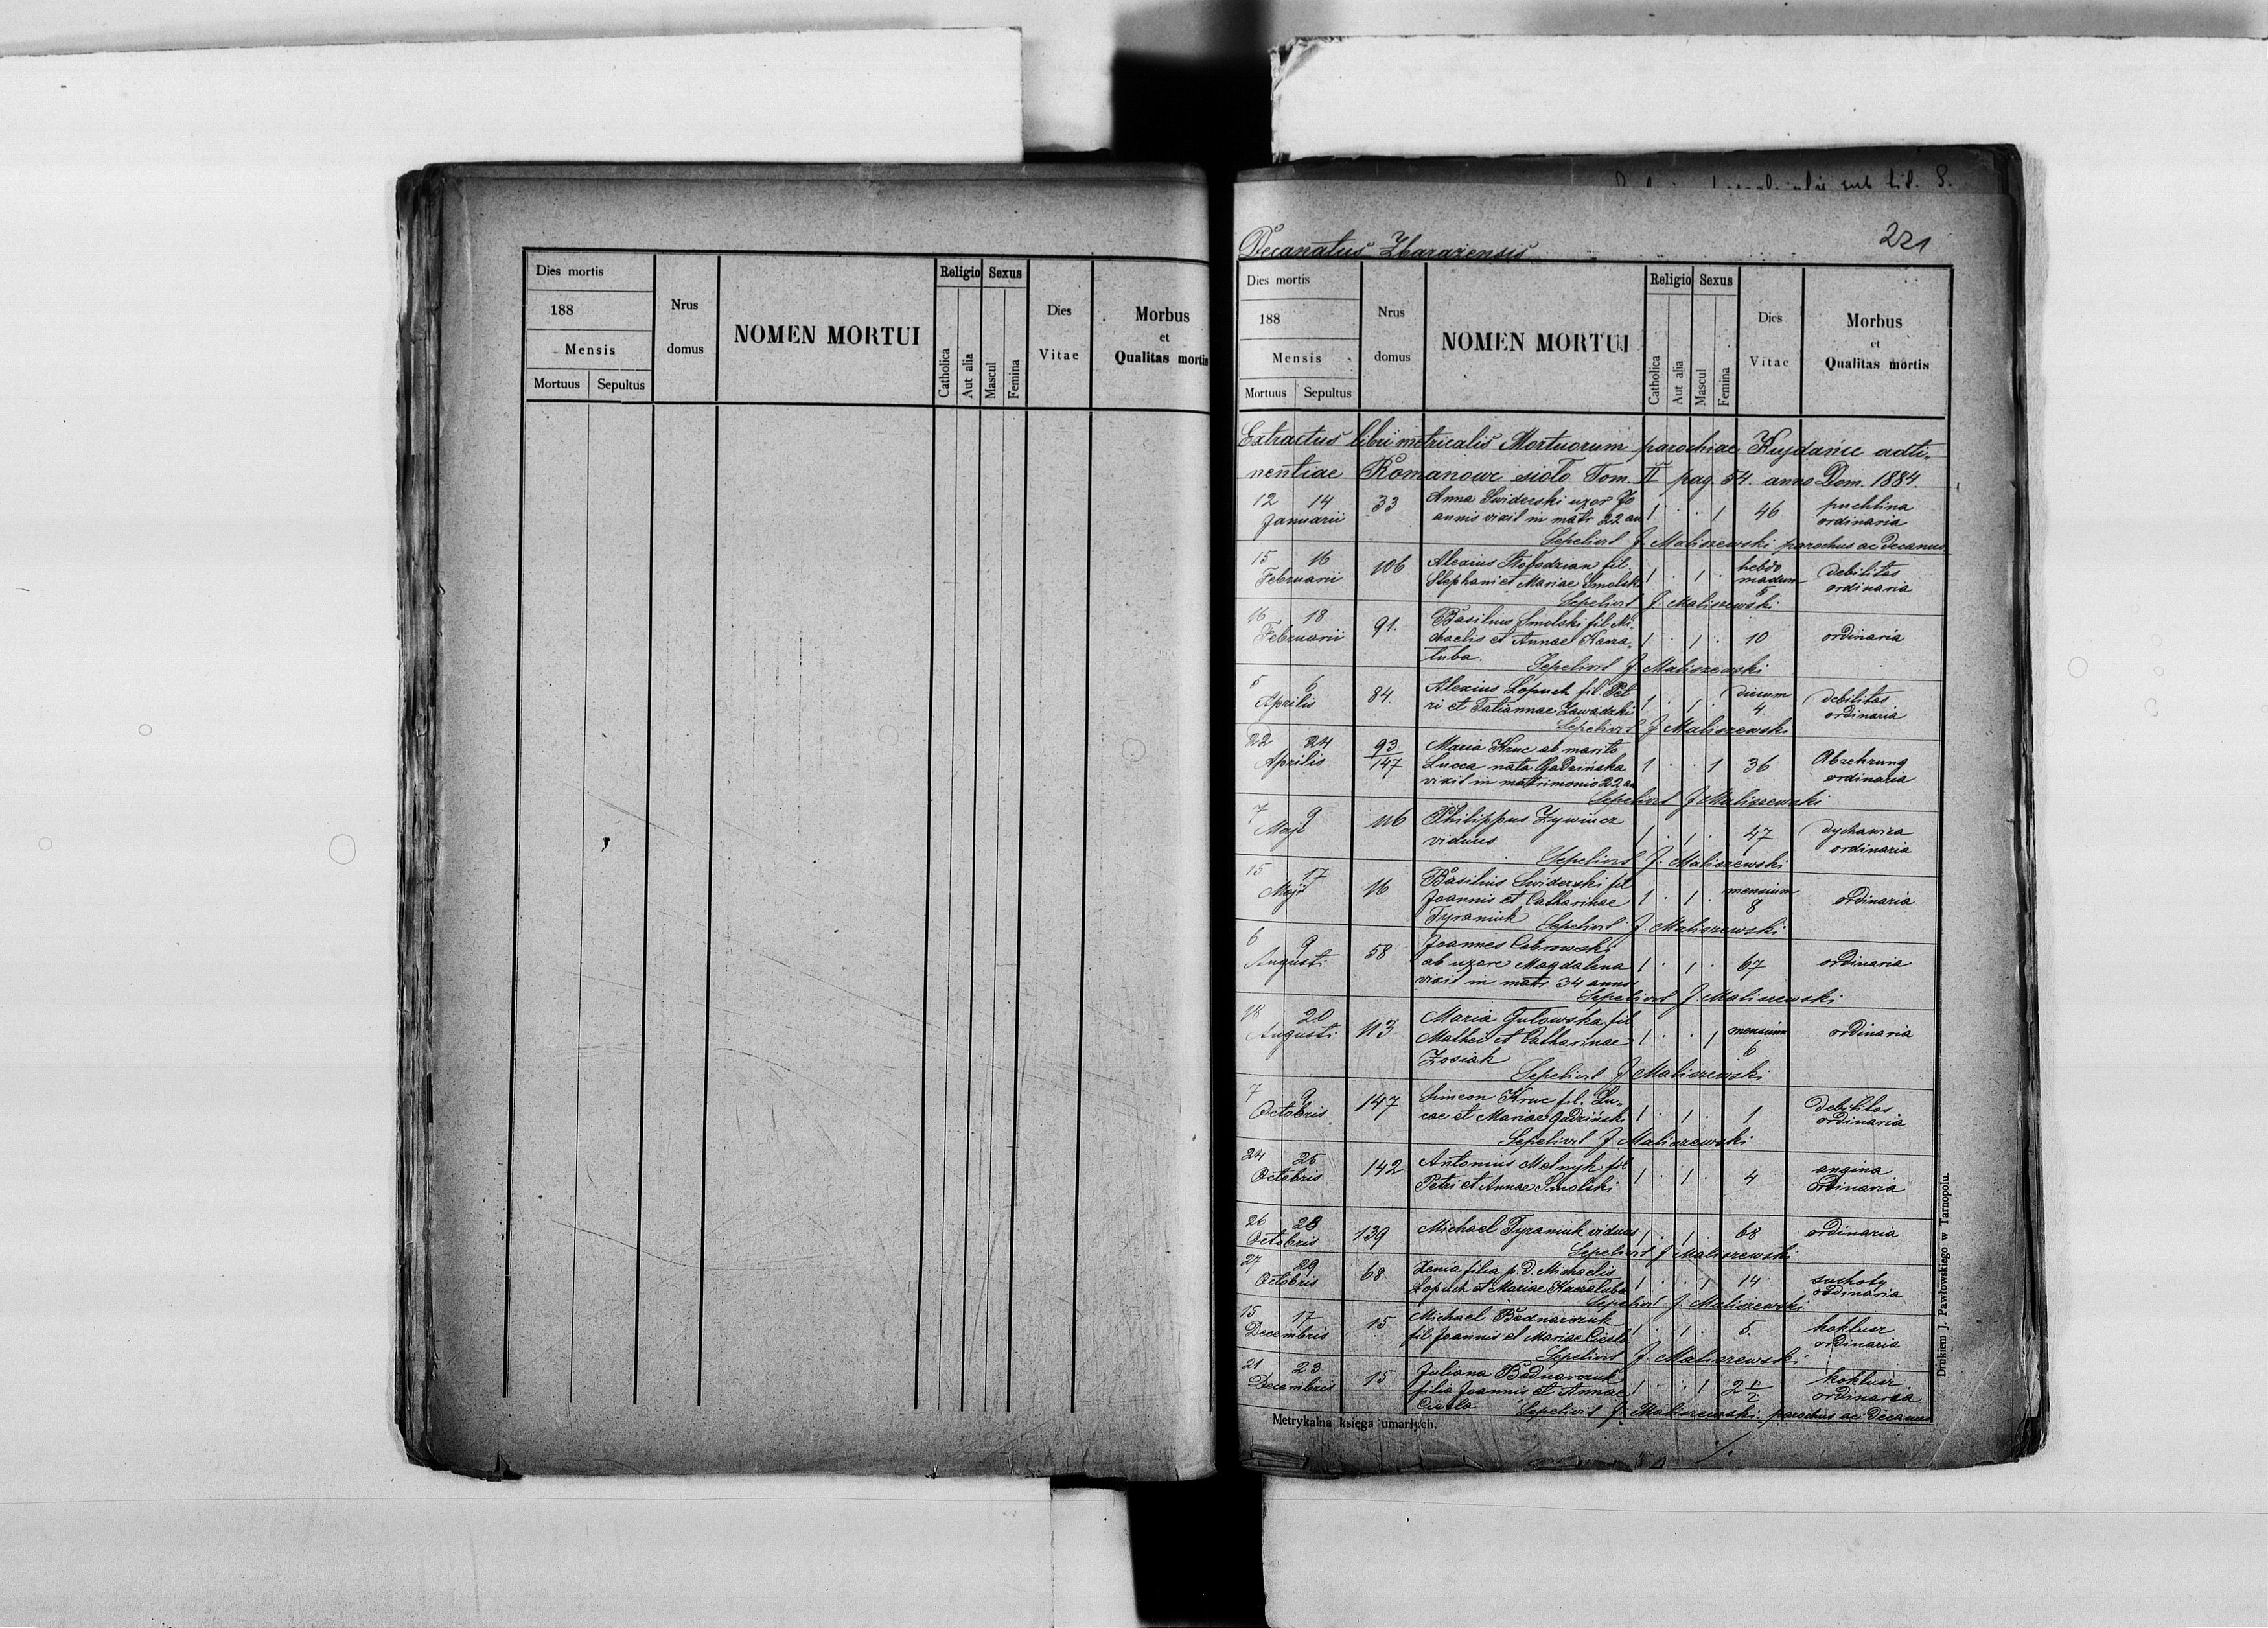 Dies mortis
188
Mensis
Mortuus Sepultus
Nrus
domus
NOMEN MORTUI
Religio Sexus
Catholica
Aut alia
Mascul
Femina
Dies
Vitae
Morbus
et
Qualitas mortis
sub lit. S.
221
Decanatus Zbaražensis
Dies mortis
188
Mensis
Mortuus Sepultus
Nrus
domus
NOMEN MORTUI
Religio Sexus
Catholica
Aut alia
Mascul
Femina
Dies
Vitae
Morbus
et
Qualitas mortis
Extractus libri metricalis Mortuorum parochiae Kujdańce adti-
nentiae Romanowe sioło Tom. II pag. 54. anno Dom. 1884.
12 14 Januarii 33 Anna Swiderski uxor Jo
annis vixit in matr 22 an 1 . . 1 46 puchlina ordinaria
Sepelivit J. Maliszewski parochus ac Decanus
15 16 Februarii 106 Alexius Słobodzian fil.
Stephani et Mariae Smolski 1 . 1 . hebdo madum 5 debilitas ordinaria
Sepelivit J Maliszewski
16 18 Februarii 91. Basilius Smolski fil Mi-
chaelis et Annae Kacza-
łuba. 1 . 1 . 10 ordinaria
Sepelivit J Maliszewski
5 6 Aprilis 84. Alexius Łopuch fil. Pet
ri et Tatiannae Zawadzki 1 . 1 . dierum 4 debilitas ordinaria
Sepelivit J Maliszewski
22 24 Aprilis 93/147 Maria Kruc ab marito
Lucca nata Gadzińska
vixit in matrimonio 22 an 1 . . 1 36 Abzehrung ordinaria
Sepelivit J Maliszewski
7 9 Maji 116 Philippus Zywiucz
viduus 1 . 1 . 47 dychawica ordinaria
Sepelivit J. Maliszewski
15 17 Maji 16 Basilius Swiderski fil
Joannis et Catharinae
Tyraniuk 1 . 1 . mensium 8 ordinaria
Sepelivit J. Maliszewski
6 9 Augusti 58 Joannes Cebrowski
ab uxore Magdalena
vixit in matr 34 annos 1 . 1 . 67 ordinaria
Sepelivit J. Maliszewski
18 20 Augusti 113 Maria Gutowska fil
Mathei et Catharinae
Zosiak 1 . . 1 mensium 6 ordinaria
Sepelivit J Maliszewski
7 9 Octobris 147 Simeon Kruc fil. Lu-
cae et Mariae Gadziński 1 . 1 . 1 Debilitas ordinaria
Sepelivit J Maliszewski
24 25 Octobris 142 Antonius Melnyk fil
Petri et Annae Smolski 1 . 1 . 4 angina ordinaria
26 28 Octobris 139 Michael Tyraniuk viduus 1 . 1 . 68 ordinaria
Sepelivit J Maliszewski
27 29 Octobris 68 Xenia filia p. d. Michaelis
Łopuch et Mariae Kaczałuba 1 . . 1 14 suchoty ordinaria
Sepelivit J. Maliszewski
15 17 Decembris 15 Michael Bodnarczuk
fil Joannis et Mariae Ciesla 1 . 1 . 5. koklusz ordinaria
Sepelivit J. Maliszewski
21 23 Decembris 15 Juliana Bodnarczuk
filia Joannis et Annae
Ciesla 1 . . 1 2 1/2 koklusz ordinaria
Sepelivit J. Maliszewski parochus ac Decanus
Metrykalna księga umarłych.
Drukiem J. Pawłowskiego w Tarnopolu.